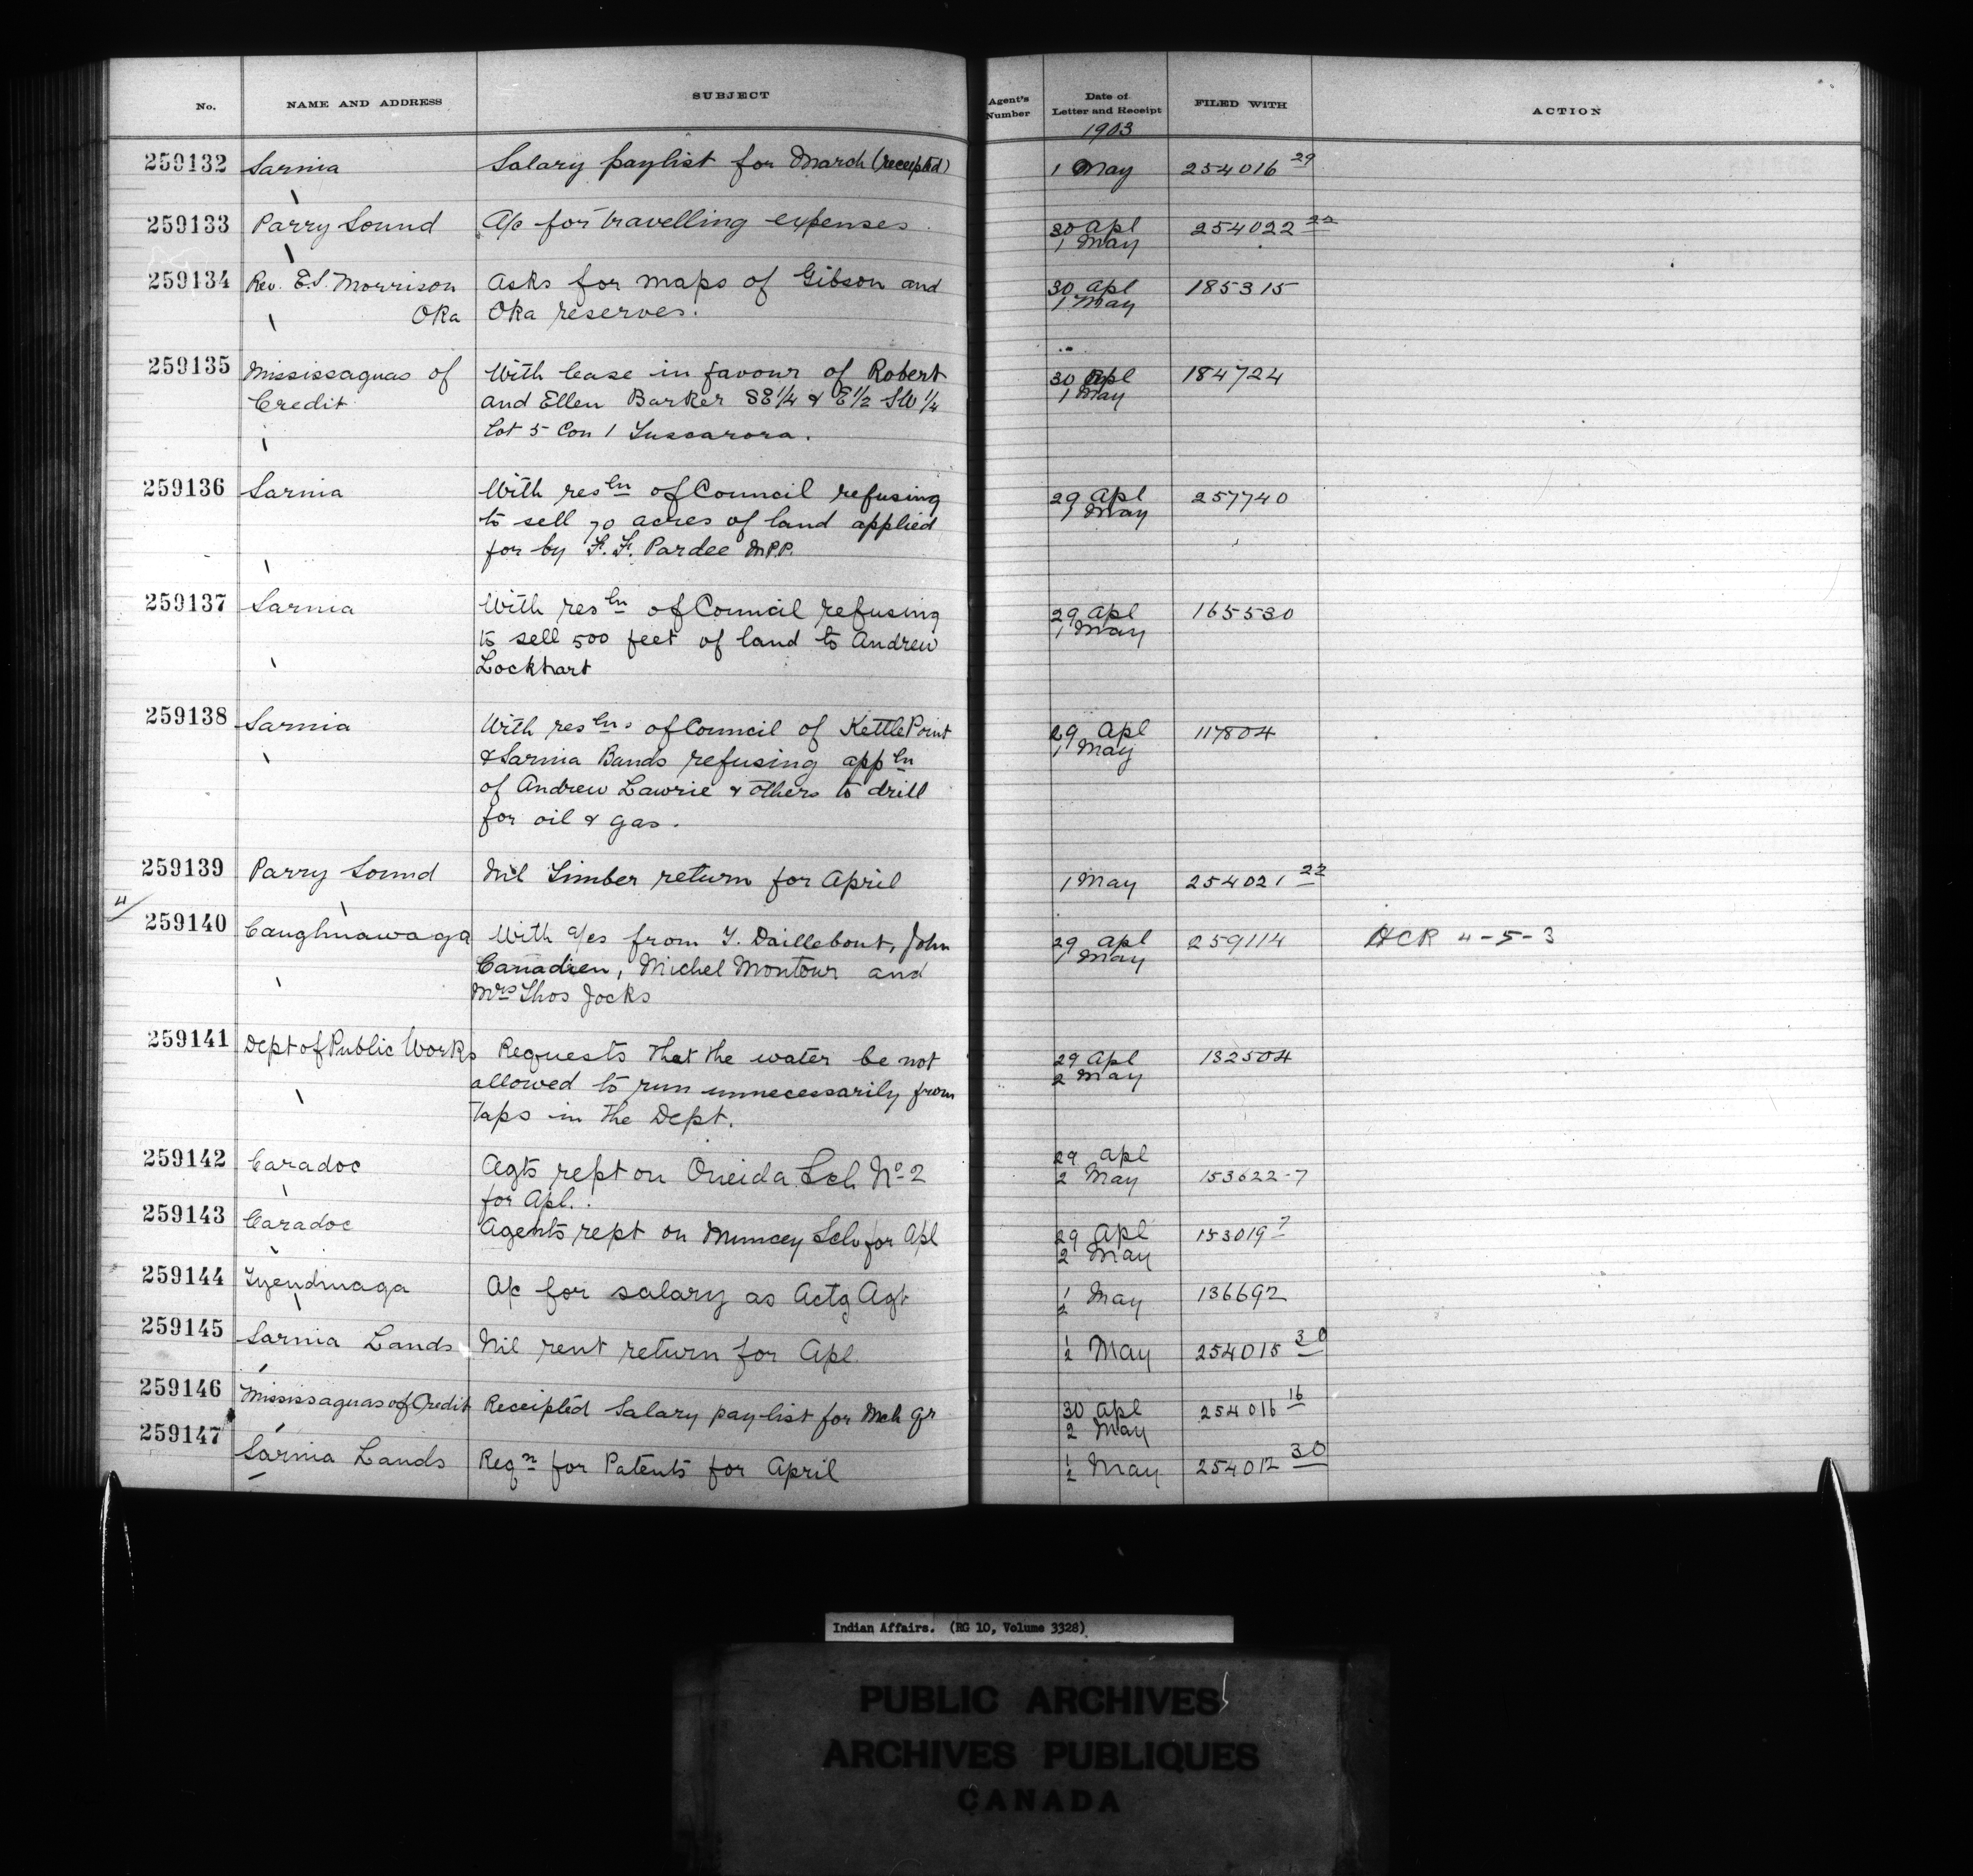 No. NAME AND ADDRESS SUBJECT Agent's Number Date of Letter and Receipt FILED WITH ACTION
1903
259132 Sarnia Salary paylist for March (receipted) 1 May 254016 29
259133 Parry Sound A/c for travelling expenses. 30 Apl 254022 22
1 May
259134 Rev. E.S. Morrison Asks for maps of Gibson and 30 Apl 185315
Oka Oka reserves. 1 May
259135 Mississaguas of With lease in favour of Robert 30 Apl 184724
Credit and Ellen Barker SE 1/4 & E 1/2 SW 1/4 1 May
Lot 5 Con 1 Tuscarora.
259136 Sarnia With resln of Council refusing 29 Apl 257740
to sell 70 acres of land applied 1 May
for by F. F. Pardee M.P.P.
259137 Sarnia With resln of Council refusing 29 Apl 165530
to sell 500 feet of land to Andrew 1 May
Lockhart
259138 Sarnia With reslns of Council of Kettle Point 29 Apl 117804
& Sarnia Bands refusing appln 1 May
of Andrew Lawrie & others to drill
for oil & gas.
259139 Parry Sound Nil Timber return for April 1 May 254021 22
4/
259140 Caughnawaga With a/cs from T. Daillebout, John 29 Apl 259114 HCR 4-5-3
Canadien, Michel Montour and 1 May
Mrs Thos Jocks
259141 Dept of Public Works Requests that the water be not 29 Apl 132504
allowed to run unnecessarily from 2 May
taps in the Dept.
259142 Caradoc Agts rept on Oneida Sch No 2 29 Apl
for Apl. 2 May 153622-7
259143 Caradoc Agents rept on Muncey Sch for Apl 29 Apl 153019 7
2 May
259144 Tyendinaga A/c for salary as Actg Agt 1 May 136692
2
259145 Sarnia Lands Nil rent return for Apl. 1 May 254015 30
2
259146 Mississaguas of Credit Receipted Salary pay-list for Mch qr 30 Apl 254016 16
2 May
259147 Sarnia Lands Reqn for Patents for April 1 May 254012 30
2
Indian Affairs. (RG 10, Volume 3328)
PUBLIC ARCHIVES
ARCHIVES PUBLIQUES
CANADA